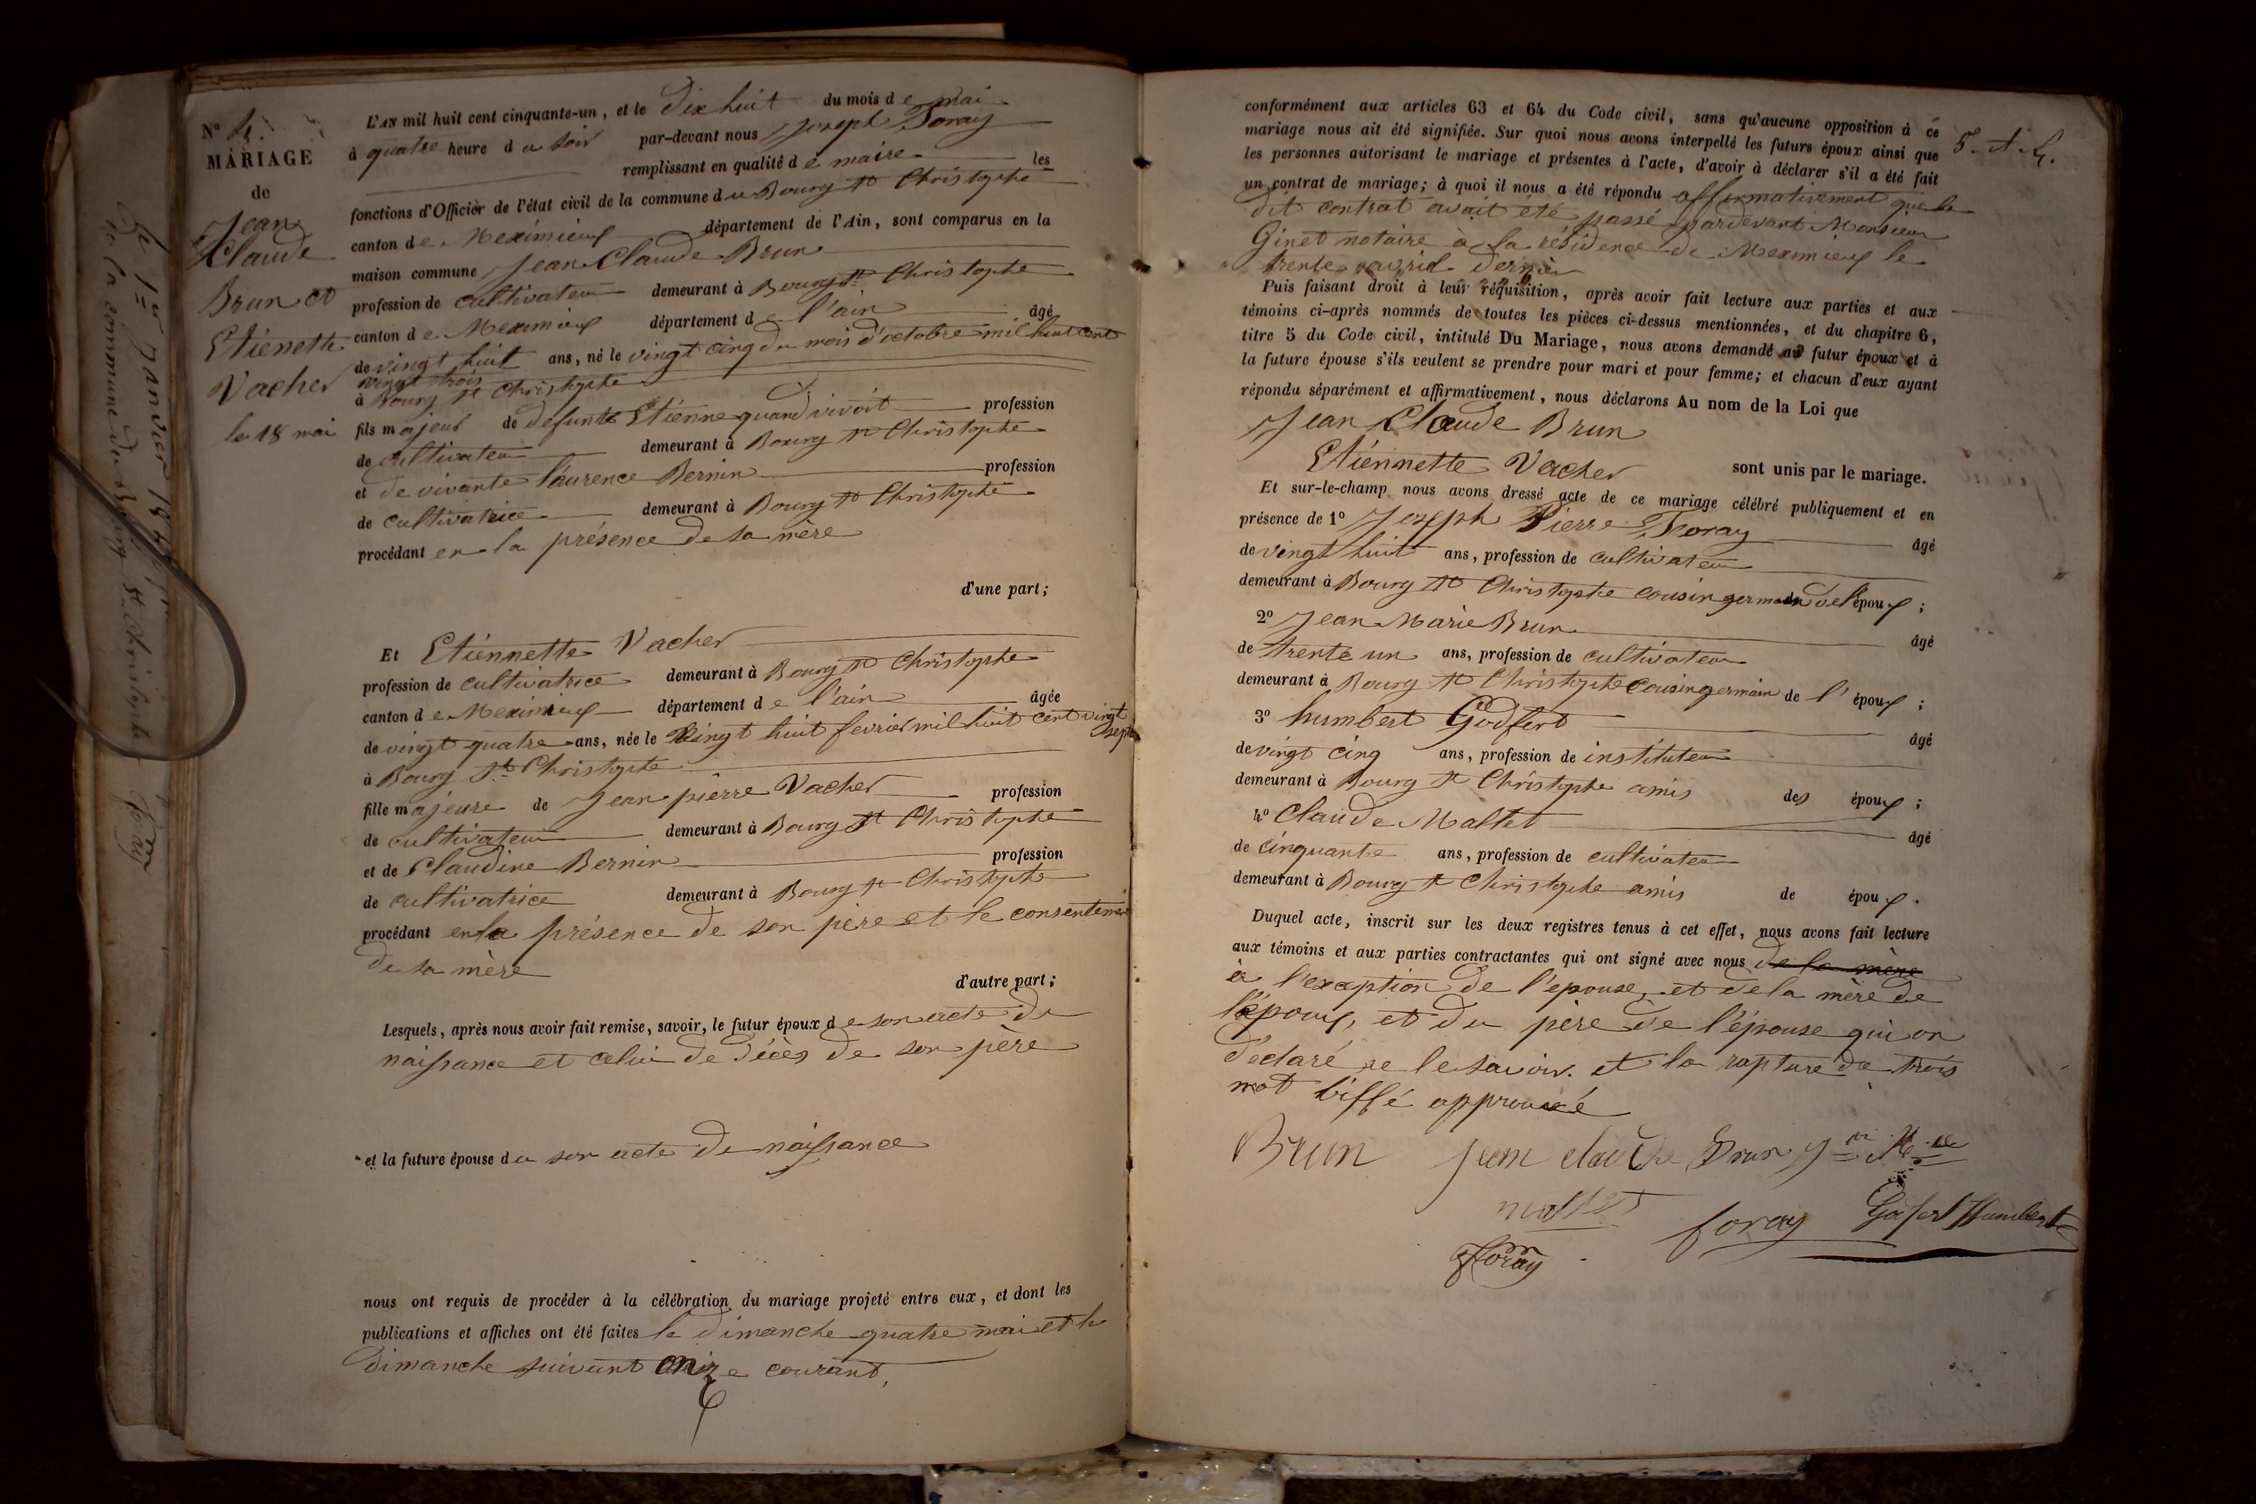 N° 4.
MARIAGE
de
Jean
Claude
Brun et
Etiénette
Vacher
le 18 mai
L'AN mil huit cent cinquante-un, et le Dix huit du mois de mai
à quatre heure du soir par-devant nous Joseph Foray
remplissant en qualité de maire les
fonctions d'Officier de l'état civil de la commune du Bourg St Christophe
canton de Meximieux département de l'Ain, sont comparus en la
maison commune Jean Claude Brun
profession de cultivateur demeurant à Bourg St Christophe
canton de Meximieux département de l'ain âgé
de vingt huit ans, né le vingt cinq du mois d'octobre mil huit cent
vingt trois
à Bourg St Christophe
fils majeur de defunt Etiénne quand vivoit profession
de cultivateur demeurant à Bourg St Christophe
et de vivante laurence Bernin profession
de cultivatrice demeurant à Bourg St Christophe
procédant en la présence de sa mère
d'une part;
Et Etiénnette Vacher
profession de cultivatrice demeurant à Bourg St Christophe
canton de Meximieux département de l'ain âgée
de vingt quatre ans, née le vingt huit fevrier mil huit cent vingt
sept
à Bourg St Christophe
fille majeure de Jean pierre Vacher profession
de cultivateur demeurant à Bourg St Christophe
et de Claudine Bernin profession
de cultivatrice demeurant à Bourg St Christophe
procédant en la présence de son père et le consentement
de sa mère
d'autre part;
Lesquels, après nous avoir fait remise, savoir, le futur époux de son acte de
naissance et celui de décès de son père
et la future épouse du son acte de naissance
nous ont requis de procéder à la célébration du mariage projeté entre eux, et dont les
publications et affiches ont été faites le dimanche quatre mai et le
dimanche suivant onze courant,
conformément aux articles 63 et 64 du Code civil, sans qu'aucune opposition à ce
mariage nous ait été signifiée. Sur quoi nous avons interpellé les futurs époux ainsi que
les personnes autorisant le mariage et présentes à l'acte, d'avoir à déclarer s'il a été fait
un contrat de mariage; à quoi il nous a été répondu affirmativement que le
dit contrat avait été passé pardevant Monsieur
Ginet notaire à la résidence de Meximieux le
trente avril dernier
Puis faisant droit à leur réquisition, après avoir fait lecture aux parties et aux
témoins ci-après nommés de toutes les pièces ci-dessus mentionnées, et du chapitre 6,
titre 5 du Code civil, intitulé Du Mariage, nous avons demandé au futur époux et à
la future épouse s'ils veulent se prendre pour mari et pour femme; et chacun d'eux ayant
répondu séparément et affirmativement, nous déclarons Au nom de la Loi que
Jean Claude Brun
Etiénnette Vacher sont unis par le mariage.
Et sur-le-champ nous avons dressé acte de ce mariage célébré publiquement et en
présence de 1° Joseph Pierre Foray âgé
de vingt huit ans, profession de cultivateur
demeurant à Bourg St Christophe cousin germain de l'époux;
2° Jean Marie Brun âgé
de trente un ans, profession de cultivateur
demeurant à Bourg St Christophe cousin germain de l'époux;
3° humbert Godfert âgé
de vingt cinq ans, profession de instituteur
demeurant à Bourg St Christophe amis des époux;
4° Claude Maltet âgé
de cinquante ans, profession de cultivateur
demeurant à Bourg St Christophe amis de époux.
Duquel acte, inscrit sur les deux registres tenus à cet effet, nous avons fait lecture
aux témoins et aux parties contractantes qui ont signé avec nous de la mère
à l'exception de l'epouse, et de la mère de
l'époux, et du père de l'épouse qui on
déclaré ne le savoir. et la rapture de trois
mot biffé approuvé
Brun Jean claude Brun
foray
Foray